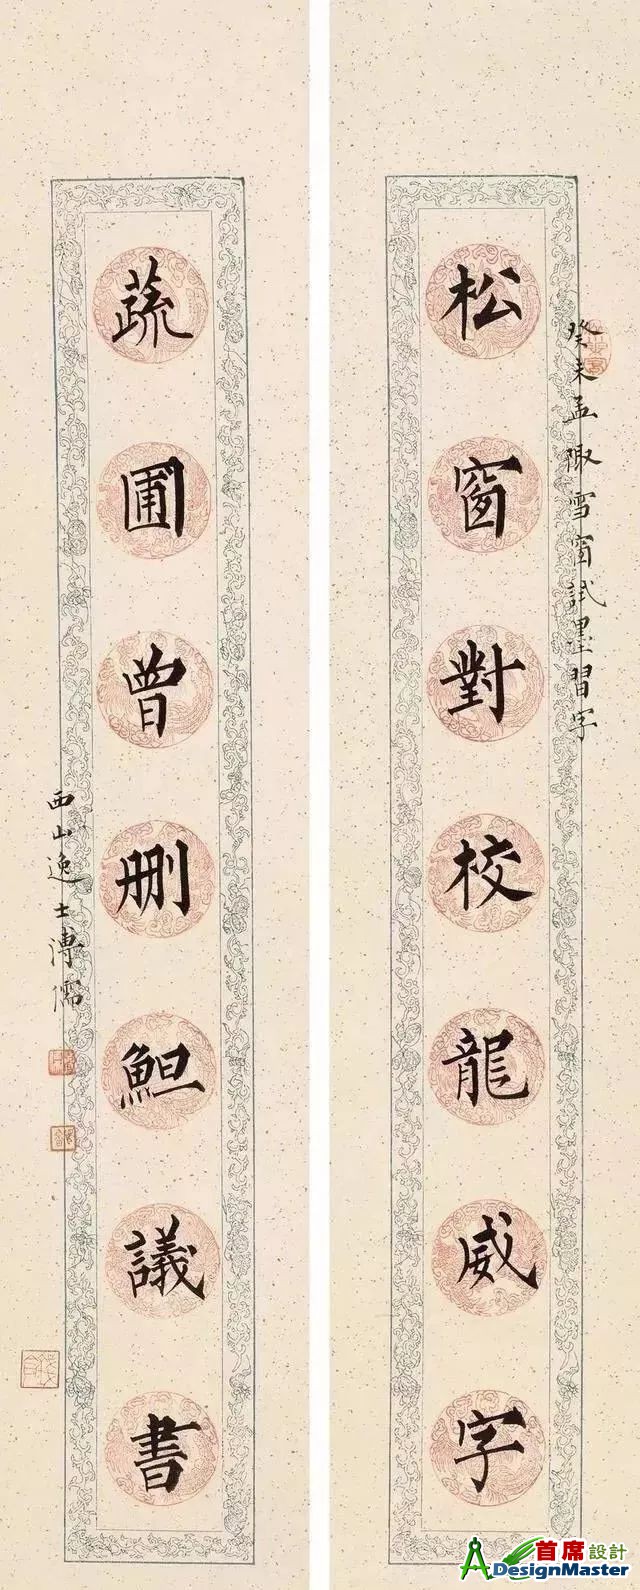 松窗對校龍威字
癸未孟陬雪窗試墨習字
蔬圃曾删䱇議書
西山逸士溥儒
首席設計
ADesignMaster